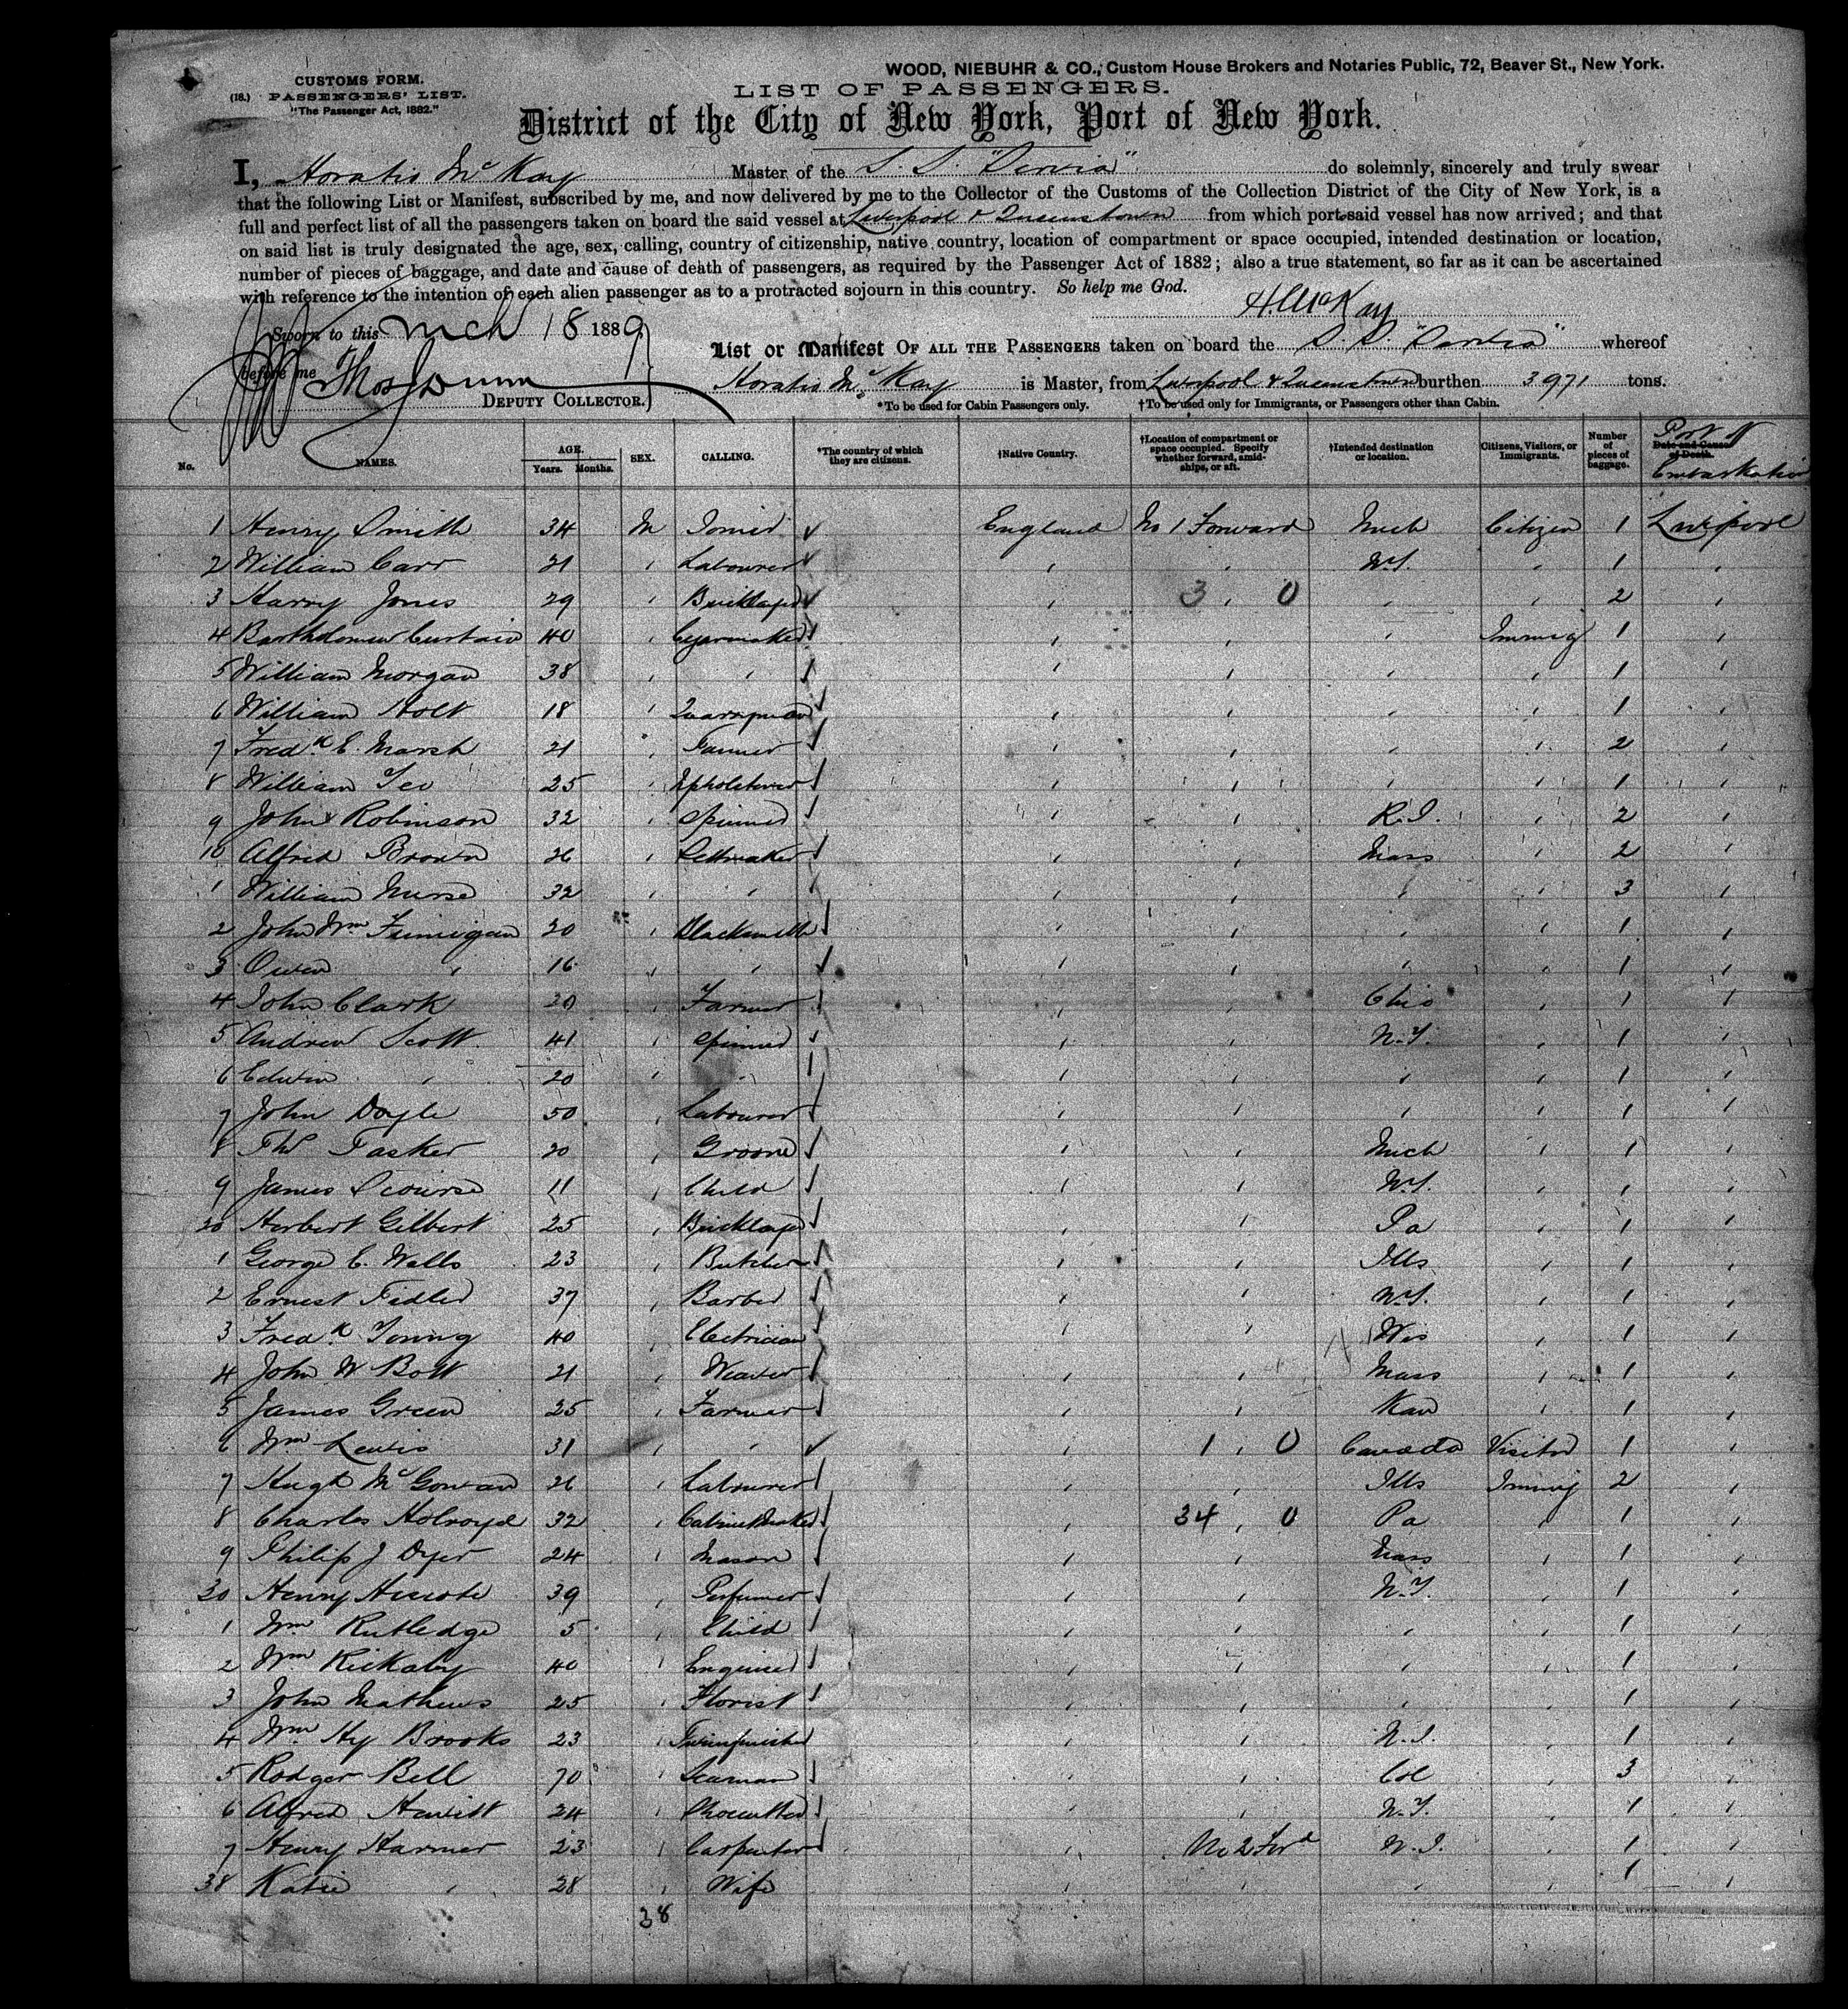 WOOD, NIEBUHR & CO., Custom House Brokers and Notaries Public, 72, Beaver St., New York.
CUSTOMS FORM.
(18.) PASSENGERS' LIST.
"The Passenger Act, 1882."
LIST OF PASSENGERS.
District of the City of New York, Port of New York.
I, Horatio McKay Master of the S. S. "Servia" do solemnly, sincerely and truly swear
that the following List or Manifest, subscribed by me, and now delivered by me to the Collector of the Customs of the Collection District of the City of New York, is a
full and perfect list of all the passengers taken on board the said vessel at Liverpool & Queenstown from which port said vessel has now arrived; and that
on said list is truly designated the age, sex, calling, country of citizenship, native country, location of compartment or space occupied, intended destination or location,
number of pieces of baggage, and date and cause of death of passengers, as required by the Passenger Act of 1882; also a true statement, so far as it can be ascertained
with reference to the intention of each alien passenger as to a protracted sojourn in this country. So help me God.
H. McKay
Sworn to this Mch 18 1889
before me Thos Dunn
DEPUTY COLLECTOR.
List or Manifest OF ALL THE PASSENGERS taken on board the S. S. "Servia" whereof
Horatio McKay is Master, from Liverpool & Queenstown burthen 3971 tons.
*To be used for Cabin Passengers only. †To be used only for Immigrants, or Passengers other than Cabin.
No. NAMES. AGE. Years. Months. SEX. CALLING. *The country of which they are citizens. †Native Country. †Location of compartment or space occupied. Specify whether forward, amidships, or aft. †Intended destination or location. Citizens, Visitors, or Immigrants. Number of pieces of baggage. Date and Cause of Death. Port of Embarkation
1 Henry Smith 34 M Joiner England No 1 Forward Mich Citizen 1 Liverpool
2 William Carr 21 ' Labourer ' ' N.Y. ' 1 '
3 Harry Jones 29 ' Bricklayer ' 3 ' 0 ' ' 2 '
4 Bartholomew Curtain 40 ' Cigarmaker ' ' ' Immig 1 '
5 William Morgan 38 ' ' ' ' ' ' 1 '
6 William Holt 18 ' Quarryman ' ' ' ' 1 '
7 Fredk E. Marsh 21 ' Farmer ' ' ' ' 2 '
8 William Teo 25 ' Upholsterer ' ' ' ' 1 '
9 John Robinson 32 ' Spinner ' ' R.I. ' 2 '
10 Alfred Brown 26 ' ' ' Mass ' 2 '
1 William Nurse 32 ' ' ' ' ' ' 3 '
2 John Wm Finnigan 20 ' Blacksmith ' ' ' ' 1 '
3 Owen ' 16 ' ' ' ' ' ' 1 '
4 John Clark 20 ' Farmer ' ' Ohio ' 1 '
5 Andrew Scott 41 ' Spinner ' ' N.Y. ' 1 '
6 Edwin ' 20 ' ' ' ' ' ' 1 '
7 John Doyle 50 ' Labourer ' ' ' ' 1 '
8 Tasker 20 ' Groom ' ' Mich ' 1 '
9 James Scourse 11 ' Child ' ' N.Y. ' 1 '
20 Herbert Gilbert 25 ' Bricklayer ' ' Pa ' 1 '
1 George E. Walls 23 ' Butcher ' ' Ills ' 1 '
2 Ernest Fidler 37 ' Barber ' ' N.Y. ' 1 '
3 Fredk Young 40 ' Electrician ' ' Wis ' 1 '
4 John W Bott 21 ' Weaver ' ' Mass ' 1 '
5 James Green 25 ' Farmer ' ' Kan ' 1 '
6 Wm Lewis 31 ' ' ' 1 ' 0 Canada Visitor 1 '
7 Hugh McGowan 26 ' Labourer ' ' Ills Immig 2 '
8 Charles Holroyd 32 ' Cabinetmaker ' 34 ' 0 Pa ' 1 '
9 Philip J Dyer 24 ' Mason ' ' Mass ' 1 '
30 Henry 39 ' Perfumer ' ' N.Y. ' 1 '
1 Wm Rutledge 5 ' Child ' ' ' ' 1 '
2 Wm Rickaby 40 ' Engineer ' ' ' ' 1 '
3 John Mathews 25 ' Florist ' ' ' ' 1 '
4 Wm Hy Brooks 23 ' ' ' N.J. ' 1 '
5 Rodger Bell 70 ' Seaman ' ' Col ' 3 '
6 Alfred Hewitt 24 ' ' ' N.Y. ' 1 '
7 Henry Harmer 23 ' Carpenter ' No 2 Ford N.J. ' 1 '
38 Katie ' 28 ' Wife ' ' ' ' 1 '
38